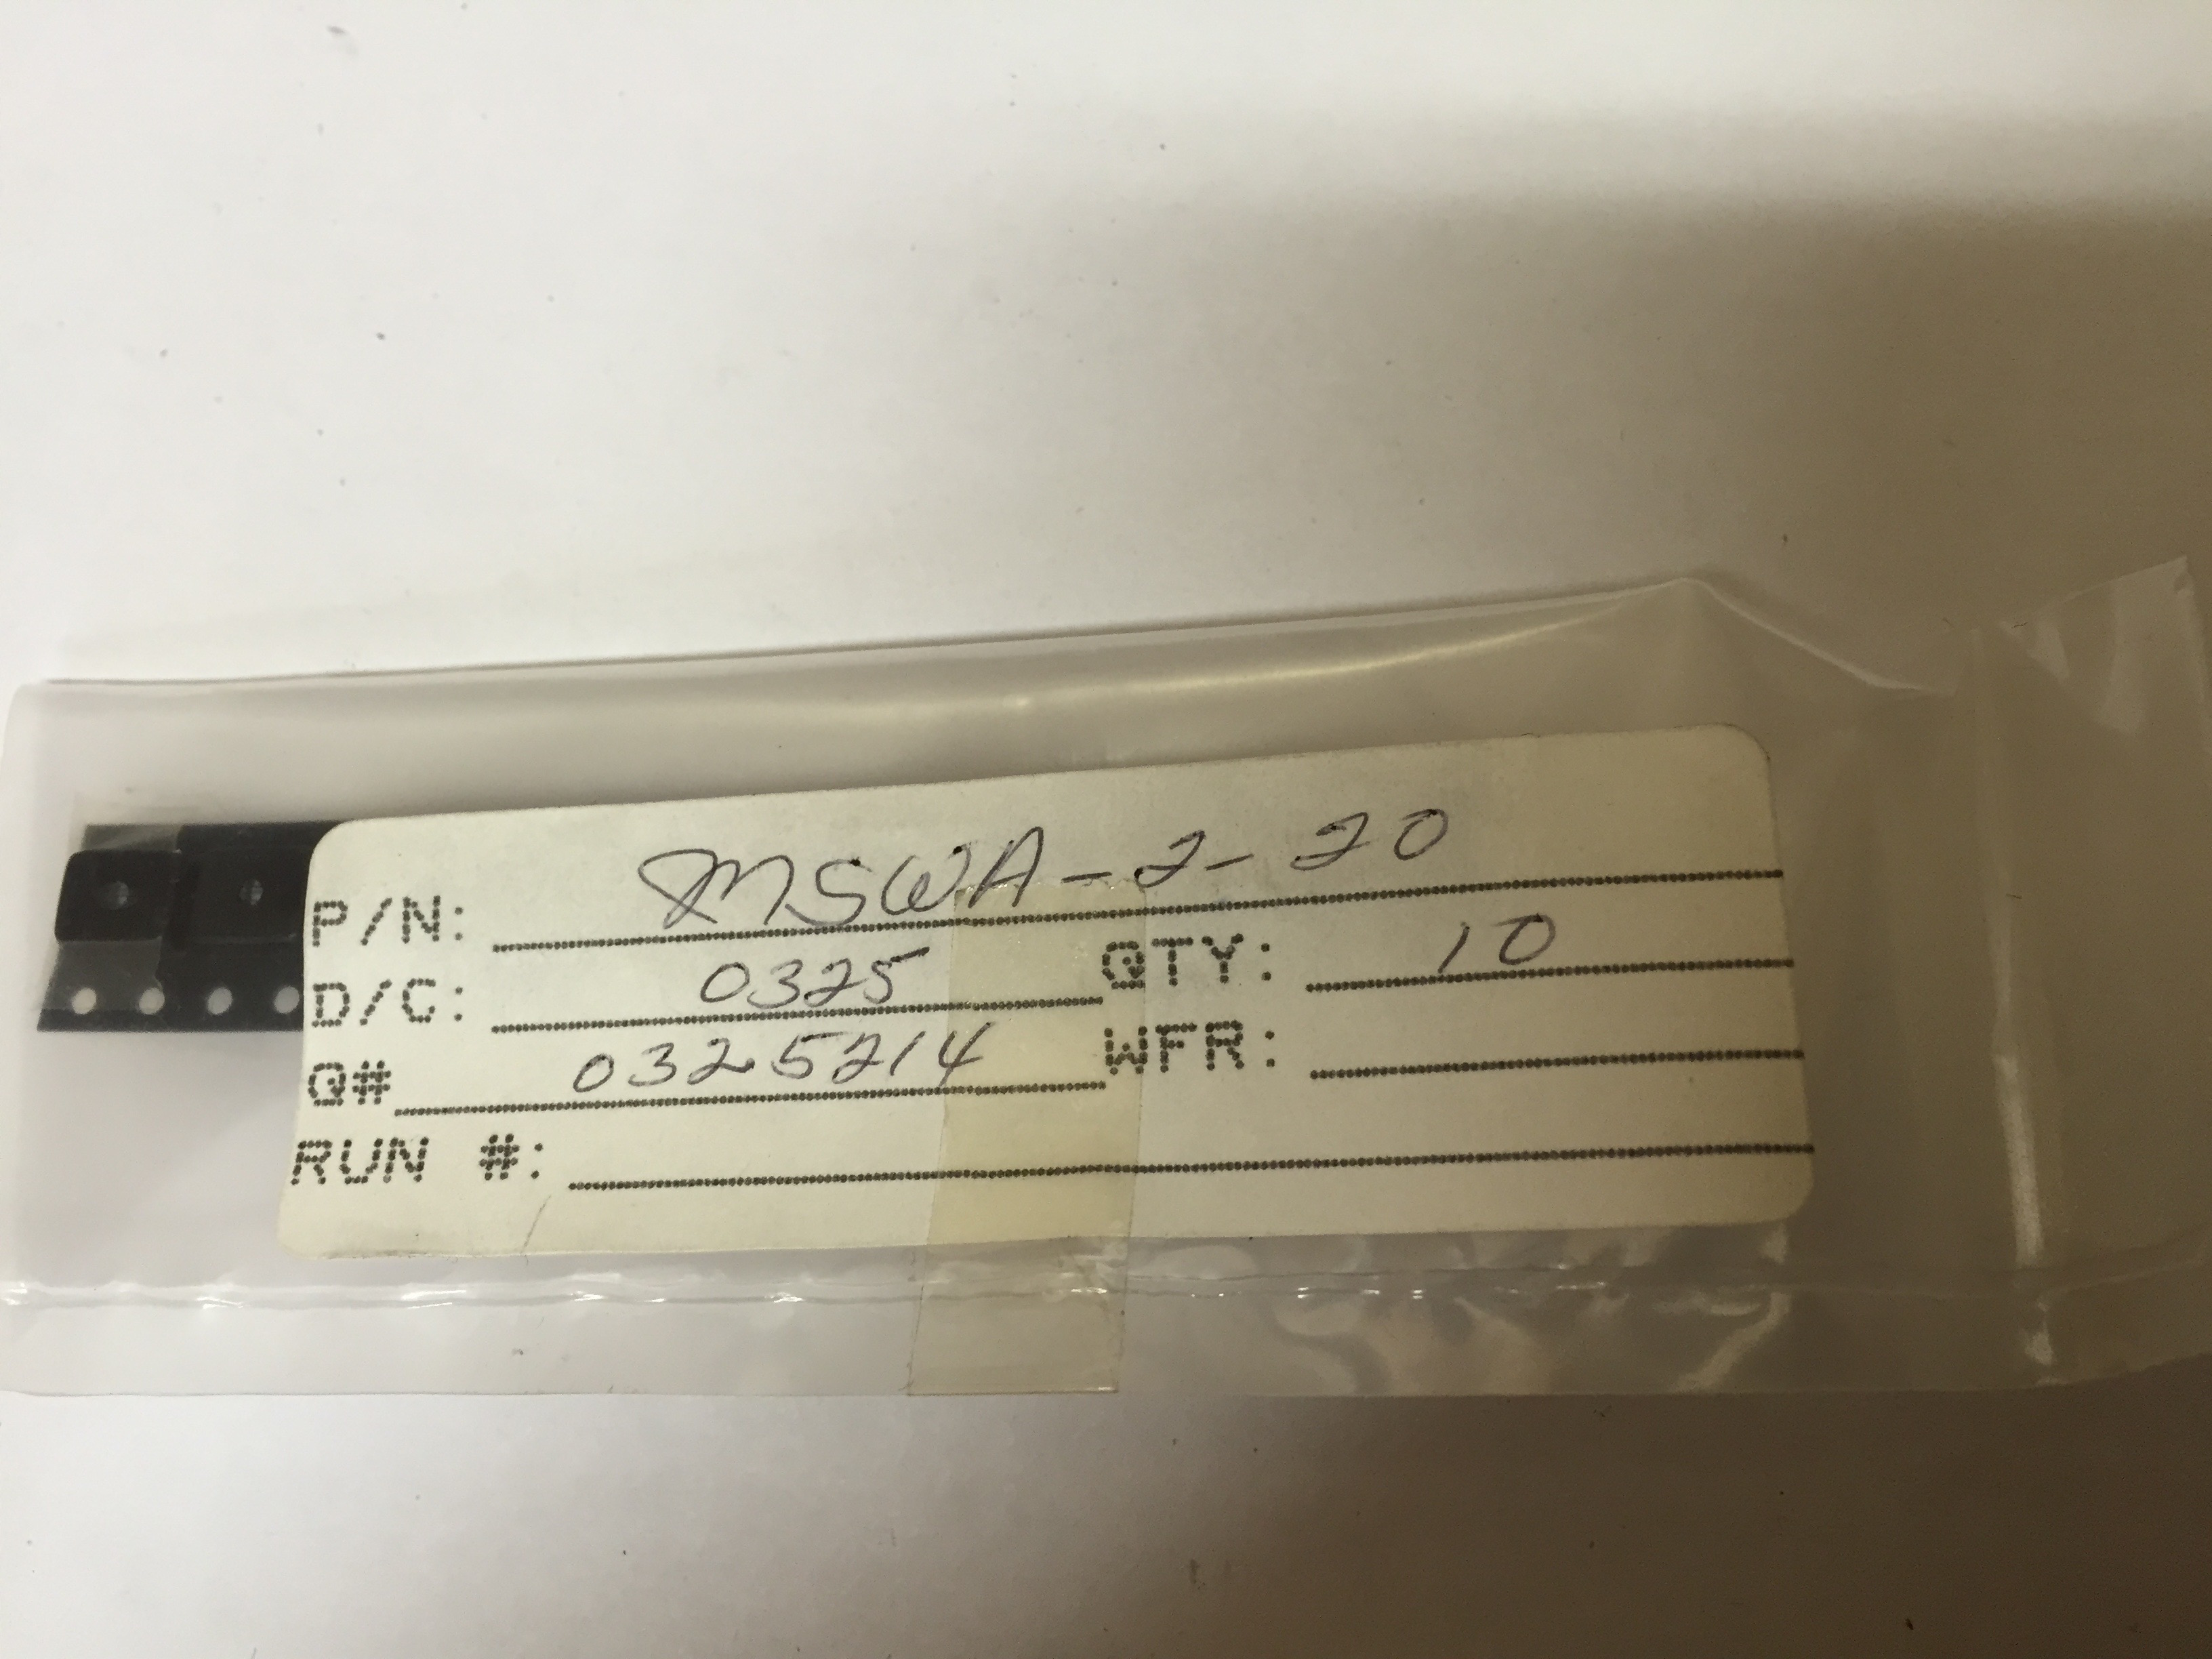 P/N: MSWA-2-20
D/C: 0325 QTY: 10
Q# 0325214 WFR:
RUN #: